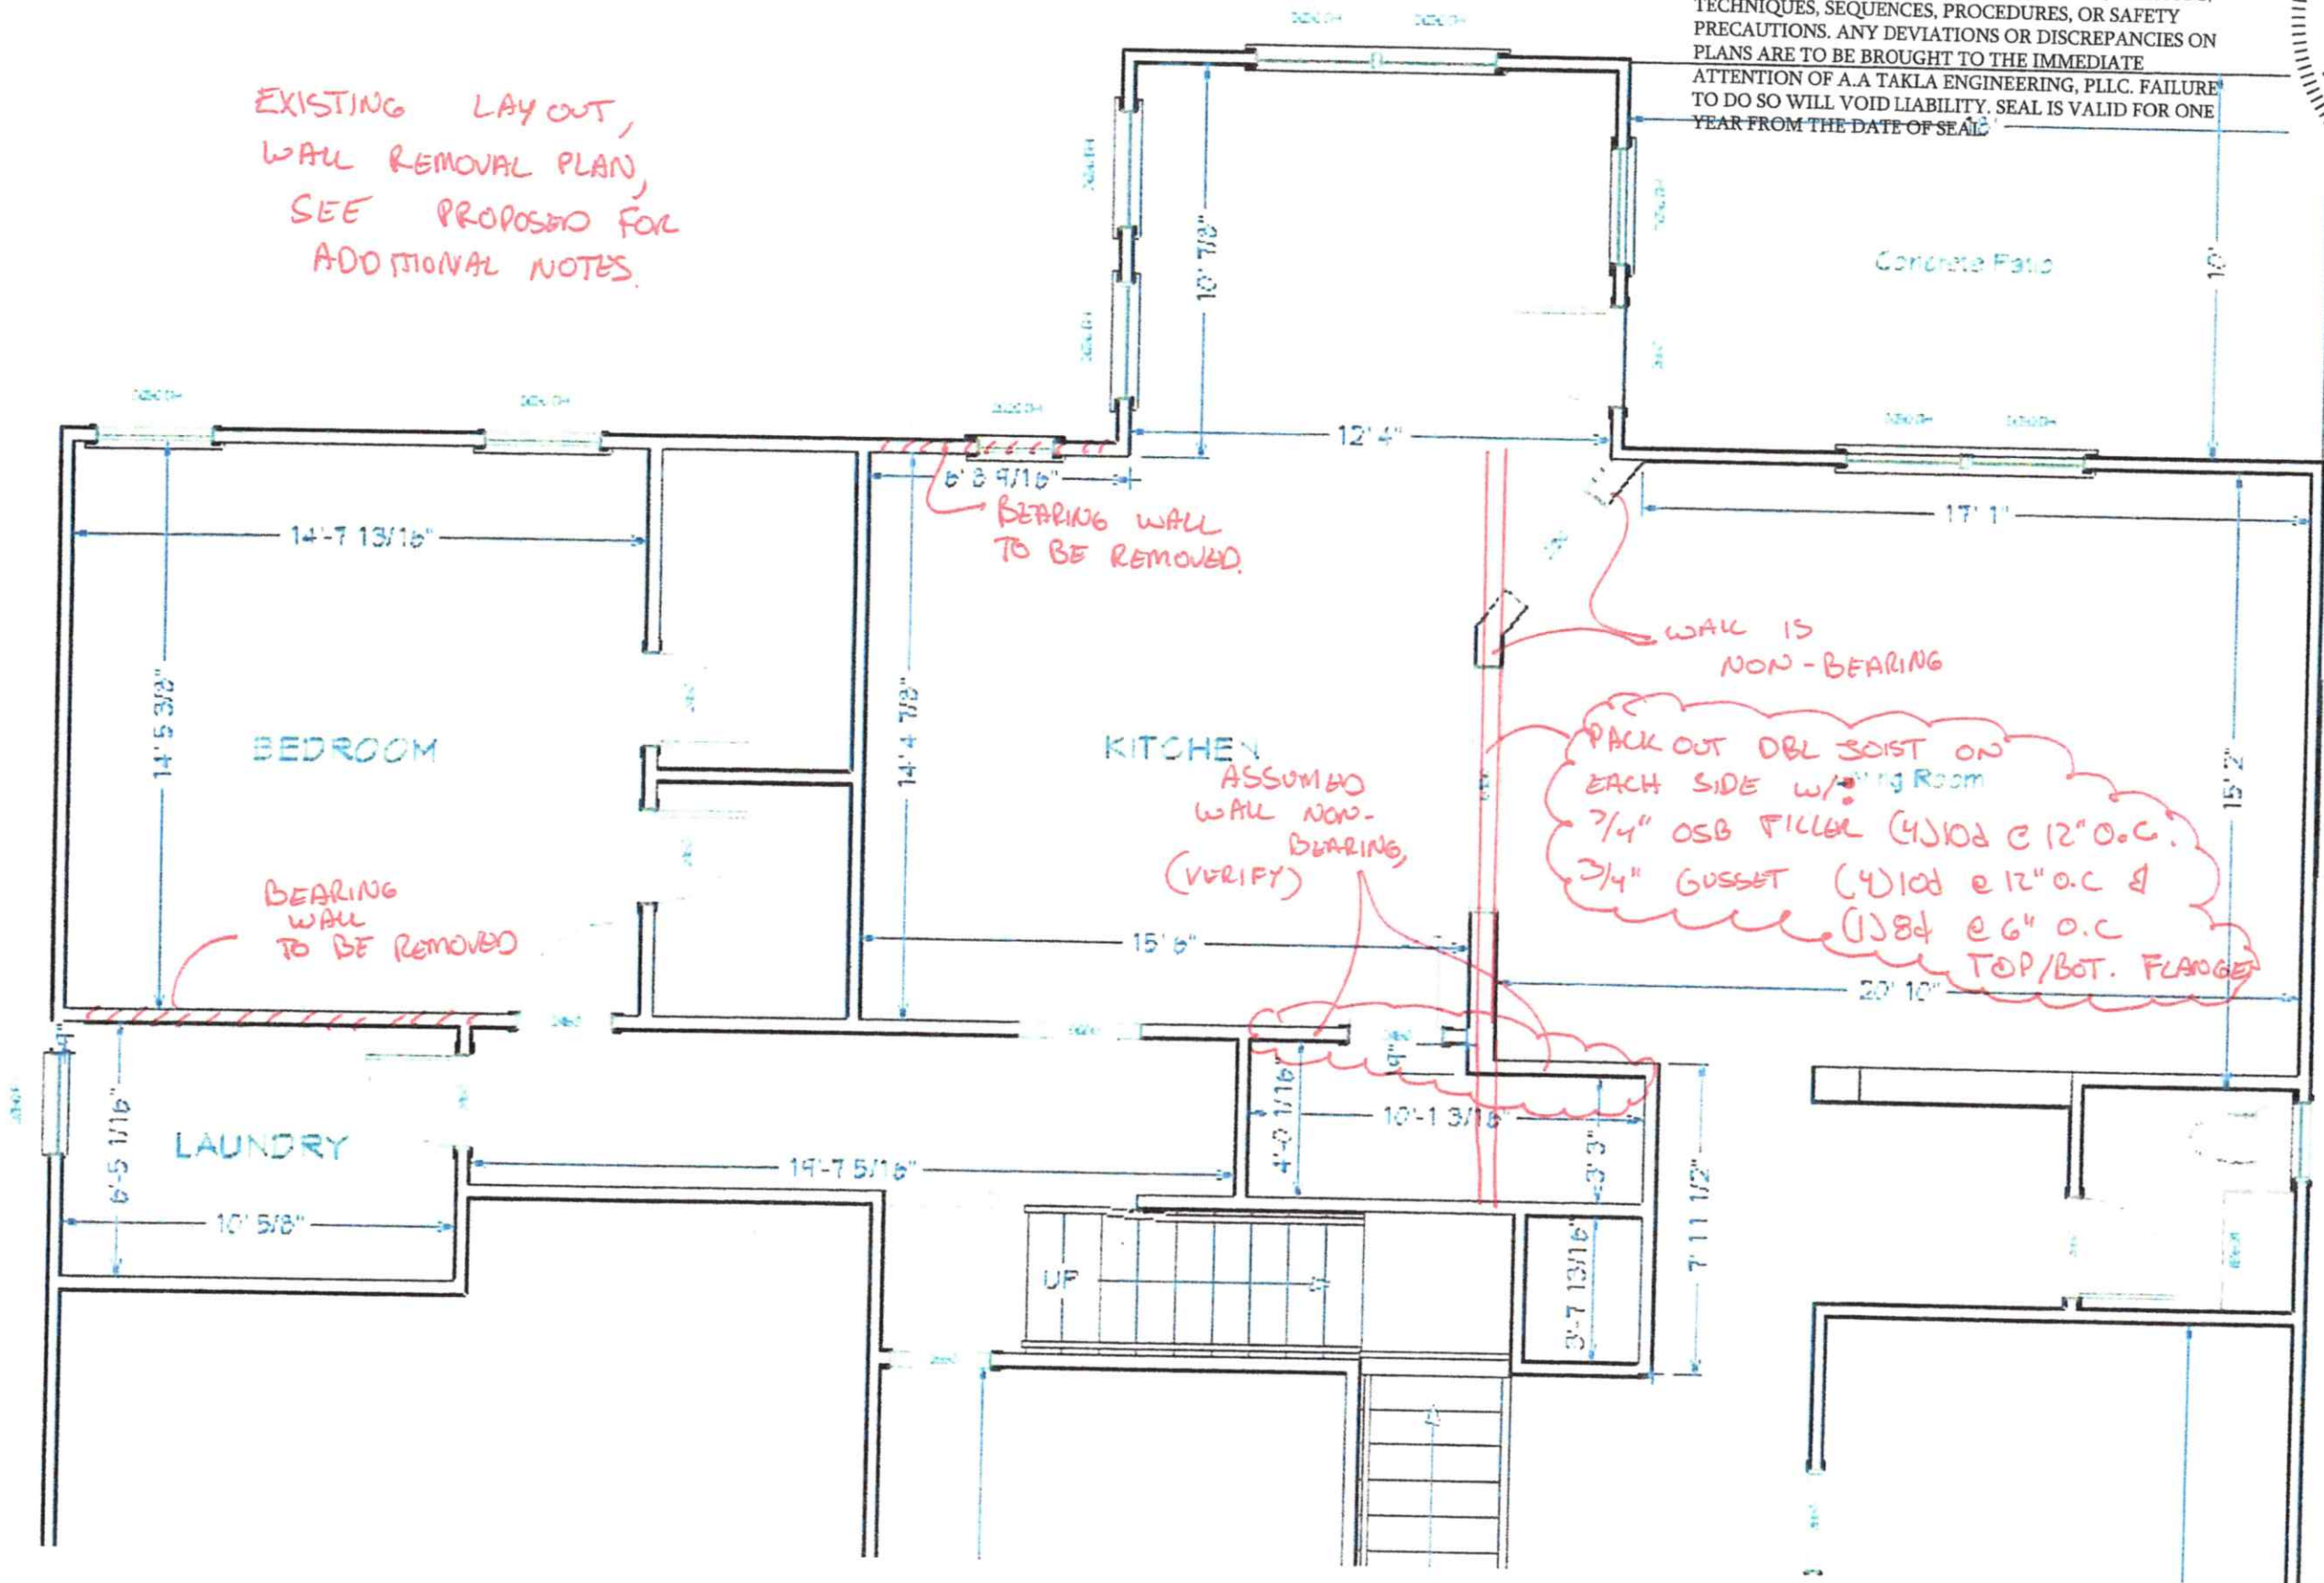 TECHNIQUES, SEQUENCES, PROCEDURES, OR SAFETY
PRECAUTIONS. ANY DEVIATIONS OR DISCREPANCIES ON
PLANS ARE TO BE BROUGHT TO THE IMMEDIATE
ATTENTION OF A.A TAKLA ENGINEERING, PLLC. FAILURE
TO DO SO WILL VOID LIABILITY. SEAL IS VALID FOR ONE
YEAR FROM THE DATE OF SEAL.
EXISTING LAYOUT,
WALL REMOVAL PLAN,
SEE PROPOSED FOR
ADDITIONAL NOTES.
10' 7/8"
Concrete Patio
10'
12' 4"
6' 8 9/16"
BEARING WALL
TO BE REMOVED.
14'-7 13/16"
17' 1"
WALL IS
NON-BEARING
14' 5 3/8"
BEDROOM
14' 4 7/8"
KITCHEN
ASSUMED
WALL NON-
BEARING,
(VERIFY)
PACK OUT DBL JOIST ON
EACH SIDE W/:
Room
3/4" OSB FILLER (4)10d @ 12" O.C.
3/4" GUSSET (4)10d @ 12" O.C &
(1)8d @ 6" O.C
TOP/BOT. FLANGE
15' 2"
BEARING
WALL
TO BE REMOVED
15' 6"
20' 10"
9"
6'-5 1/16"
LAUNDRY
10' 5/8"
19'-7 5/16"
4'-0 1/16"
10'-1 3/16"
3' 3"
7' 11 1/2"
UP
3'-7 13/16"